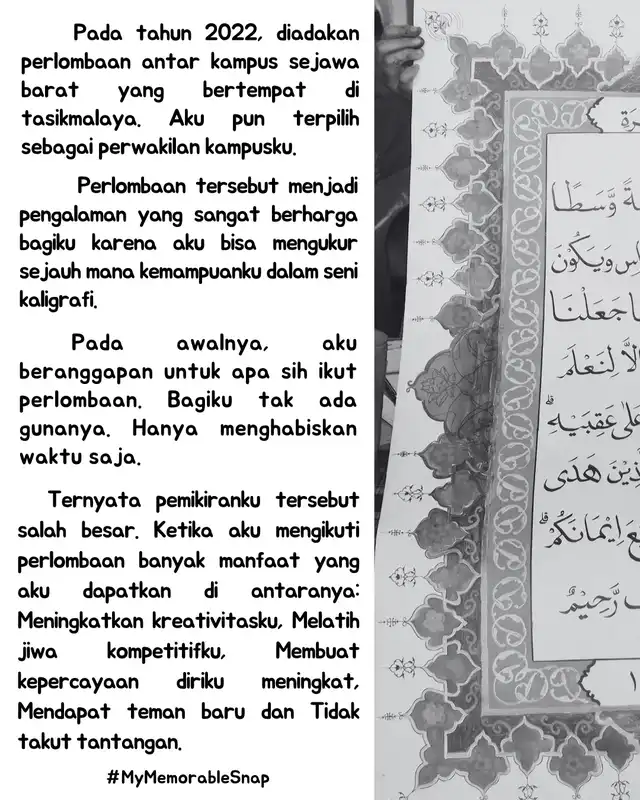 Pada tahun 2022, diadakan
perlombaan antar kampus sejawa
barat yang bertempat di
tasikmalaya. Aku pun terpilih
sebagai perwakilan kampusku.
Perlombaan tersebut menjadi
pengalaman yang sangat berharga
bagiku karena aku bisa mengukur
sejauh mana kemampuanku dalam seni
kaligrafi.
Pada awalnya, aku
beranggapan untuk apa sih ikut
perlombaan. Bagiku tak ada
gunanya. Hanya menghabiskan
waktu saja.
Ternyata pemikiranku tersebut
salah besar. Ketika aku mengikuti
perlombaan banyak manfaat yang
aku dapatkan di antaranya:
Meningkatkan kreativitasku, Melatih
jiwa kompetitifku, Membuat
kepercayaan diriku meningkat,
Mendapat teman baru dan Tidak
takut tantangan.
#MyMemorableSnap
وَّسَطًا
وَيَكُوْنَ
جَعَلْنَا
لِنَعْلَمَ
عَلٰى عَقِبَيْهِ ۗ
هَدَى
اِيْمَانَكُمْ ۗ
رَّحِيْمٌ